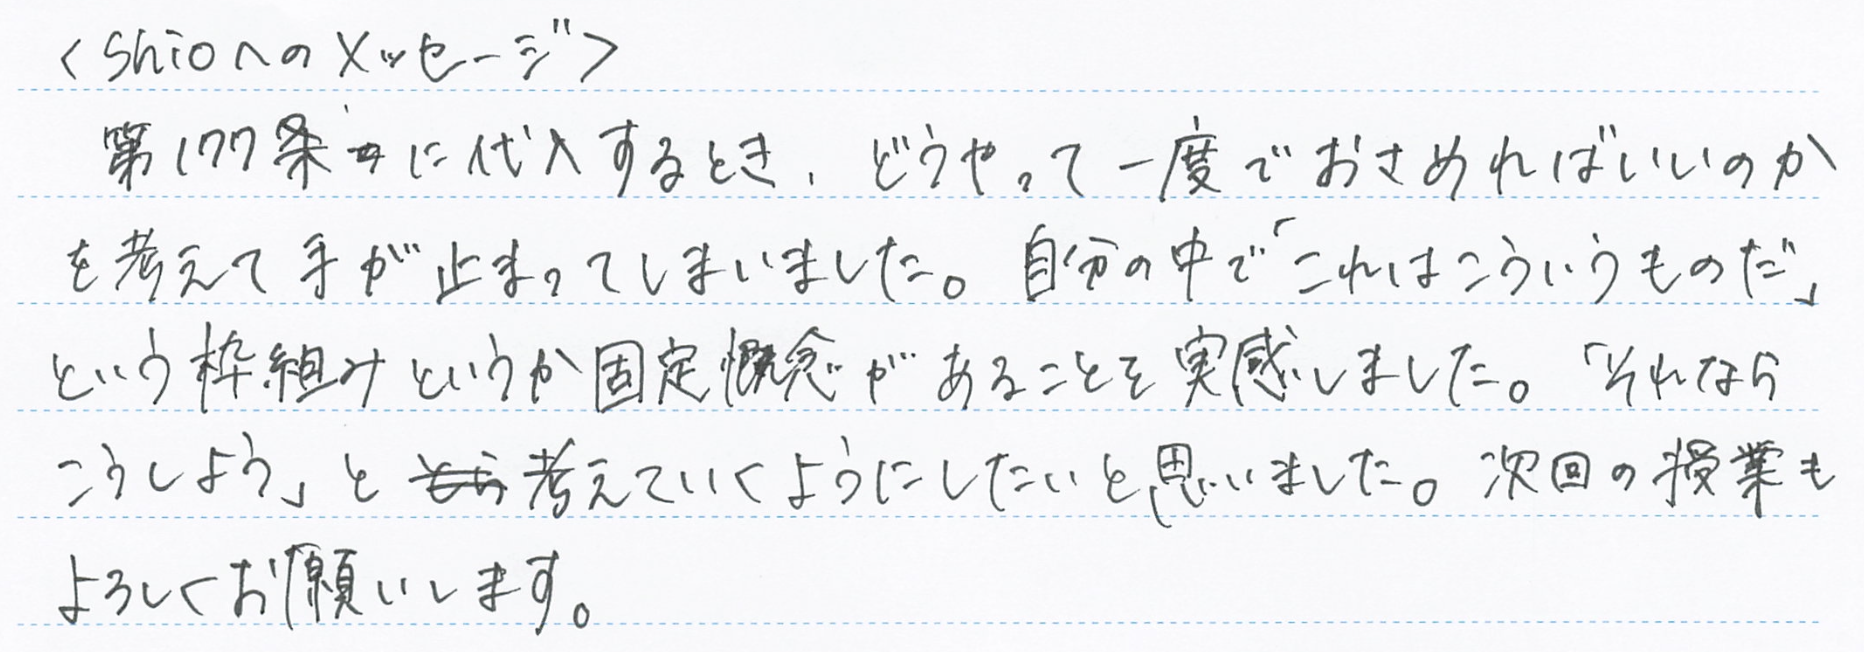 <shioへのメッセージ>
第177条に代入するとき、どうやって一度でおさめればいいのか
を考えて手が止まってしまいました。自分の中で「これはこういうものだ」
という枠組みというか固定概念があることを実感しました。「それなら
こうしよう」と考えていくようにしたいと思いました。次回の授業も
よろしくお願いします。